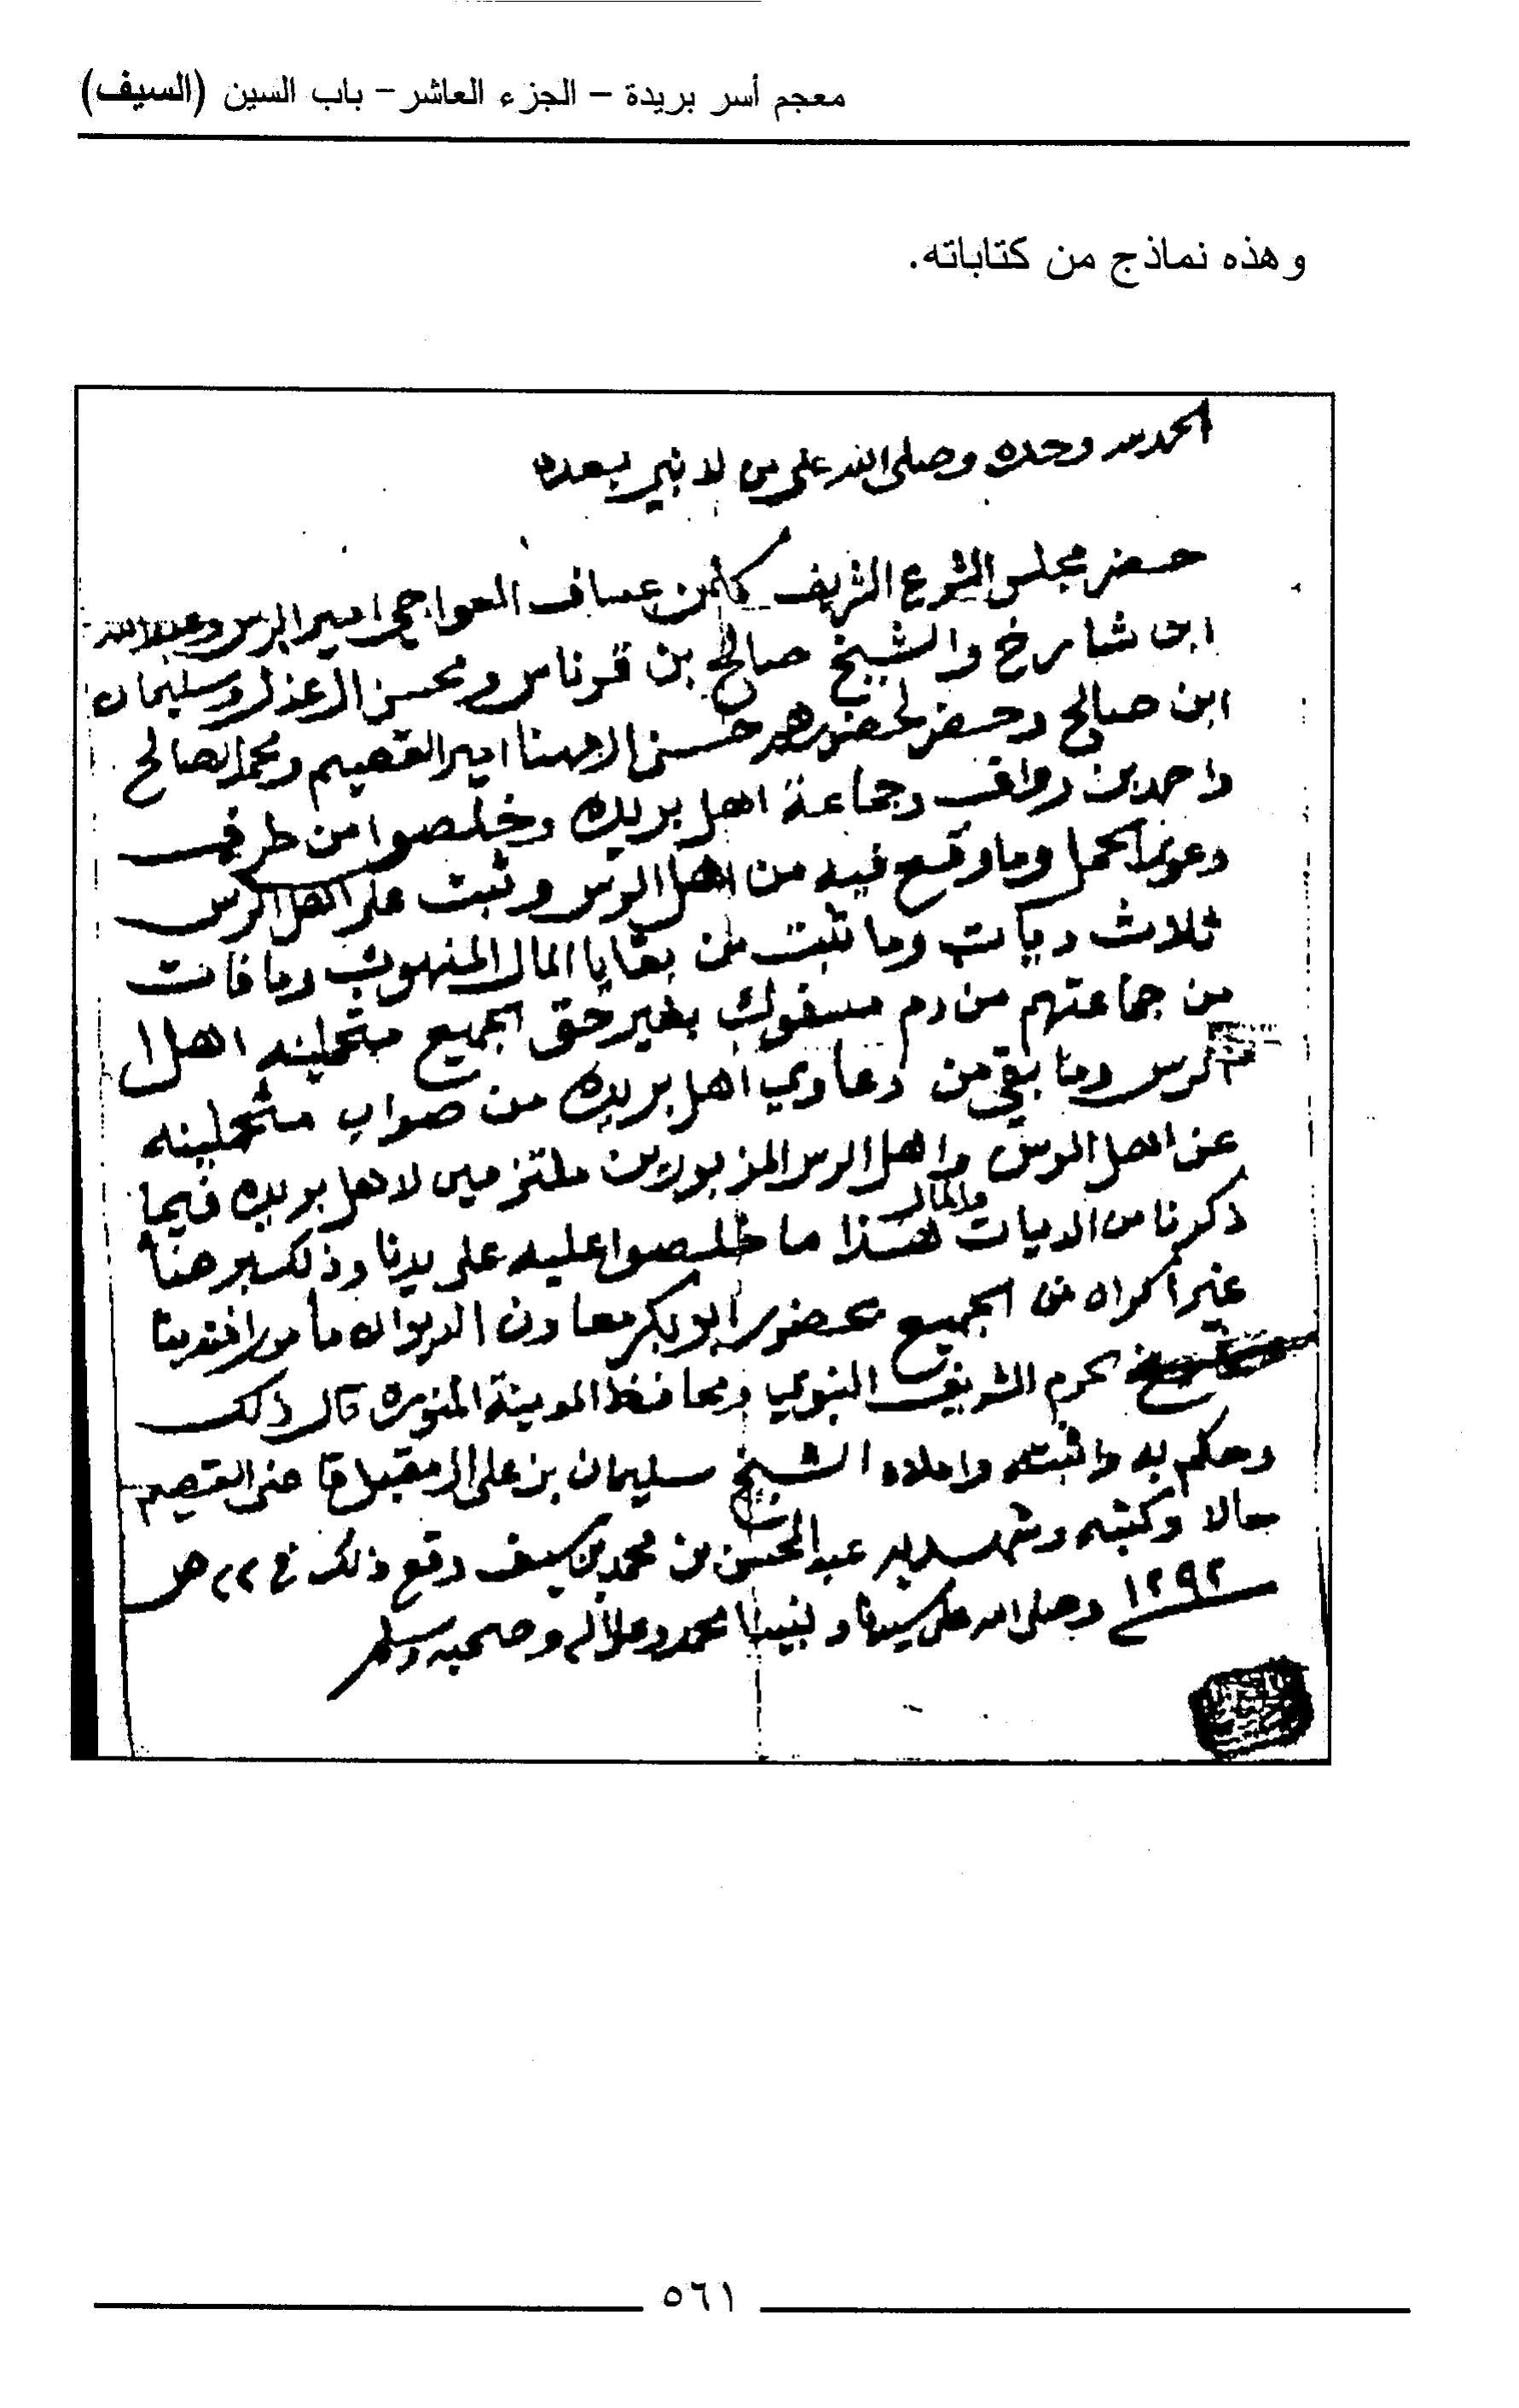 معجم أسر بريدة – الجزء العاشر – باب السين (السيف)
وهذه نماذج من كتاباته.
الحمد لله وحده وصلى الله على من لا نبي بعده
حضر مجلس الشرع الشريف كلمن عساف العواجي امير الرس وعبدالله
ابن شارخ والشيخ صالح بن قرناس ومحسن ال عذل وسليمان
ابن صالح وحضر لحضورهم حسن ال مهنا امير القصيم ومحمد الصالح
واحمد بن رواف وجماعة اهل بريده وخلصوا من طرف
دعوى الحمل وما وقع فيه من اهل الرس وثبت على اهل الرس
ثلاث ديات وما ثبت من بقايا المال المنهوب وما فات
من جماعتهم من دم مسفوك بغير حق الجميع متحملينه اهل ا
لرس وما بقي من دعاوي اهل بريده من صواب متحملينه
عن اهل الرس واهل الرس المزبورين ملتزمين لاهل بريده فيما
ذكرنا من الديات والمال هذا ما خلصوا عليه على يدنا وذلك برضا
غير اكراه من الجميع بحضور ابو بكر معاون الديوان مأمور افندينا
شيخ الحرم الشريف النبوي ومحافظ المدينة المنوره قال ذلك
وحكم به واثبته واملاه الشيخ سليمان بن علي ال مقبل قاضي القصيم
حالا وكتبه وشهد به عبدالمحسن بن محمد بن سيف وقع ذلك في ٢٢ ص
١٢٩٢ وصلى الله على سيدنا ونبينا محمد وعلى اله وصحبه وسلم
٥٦١